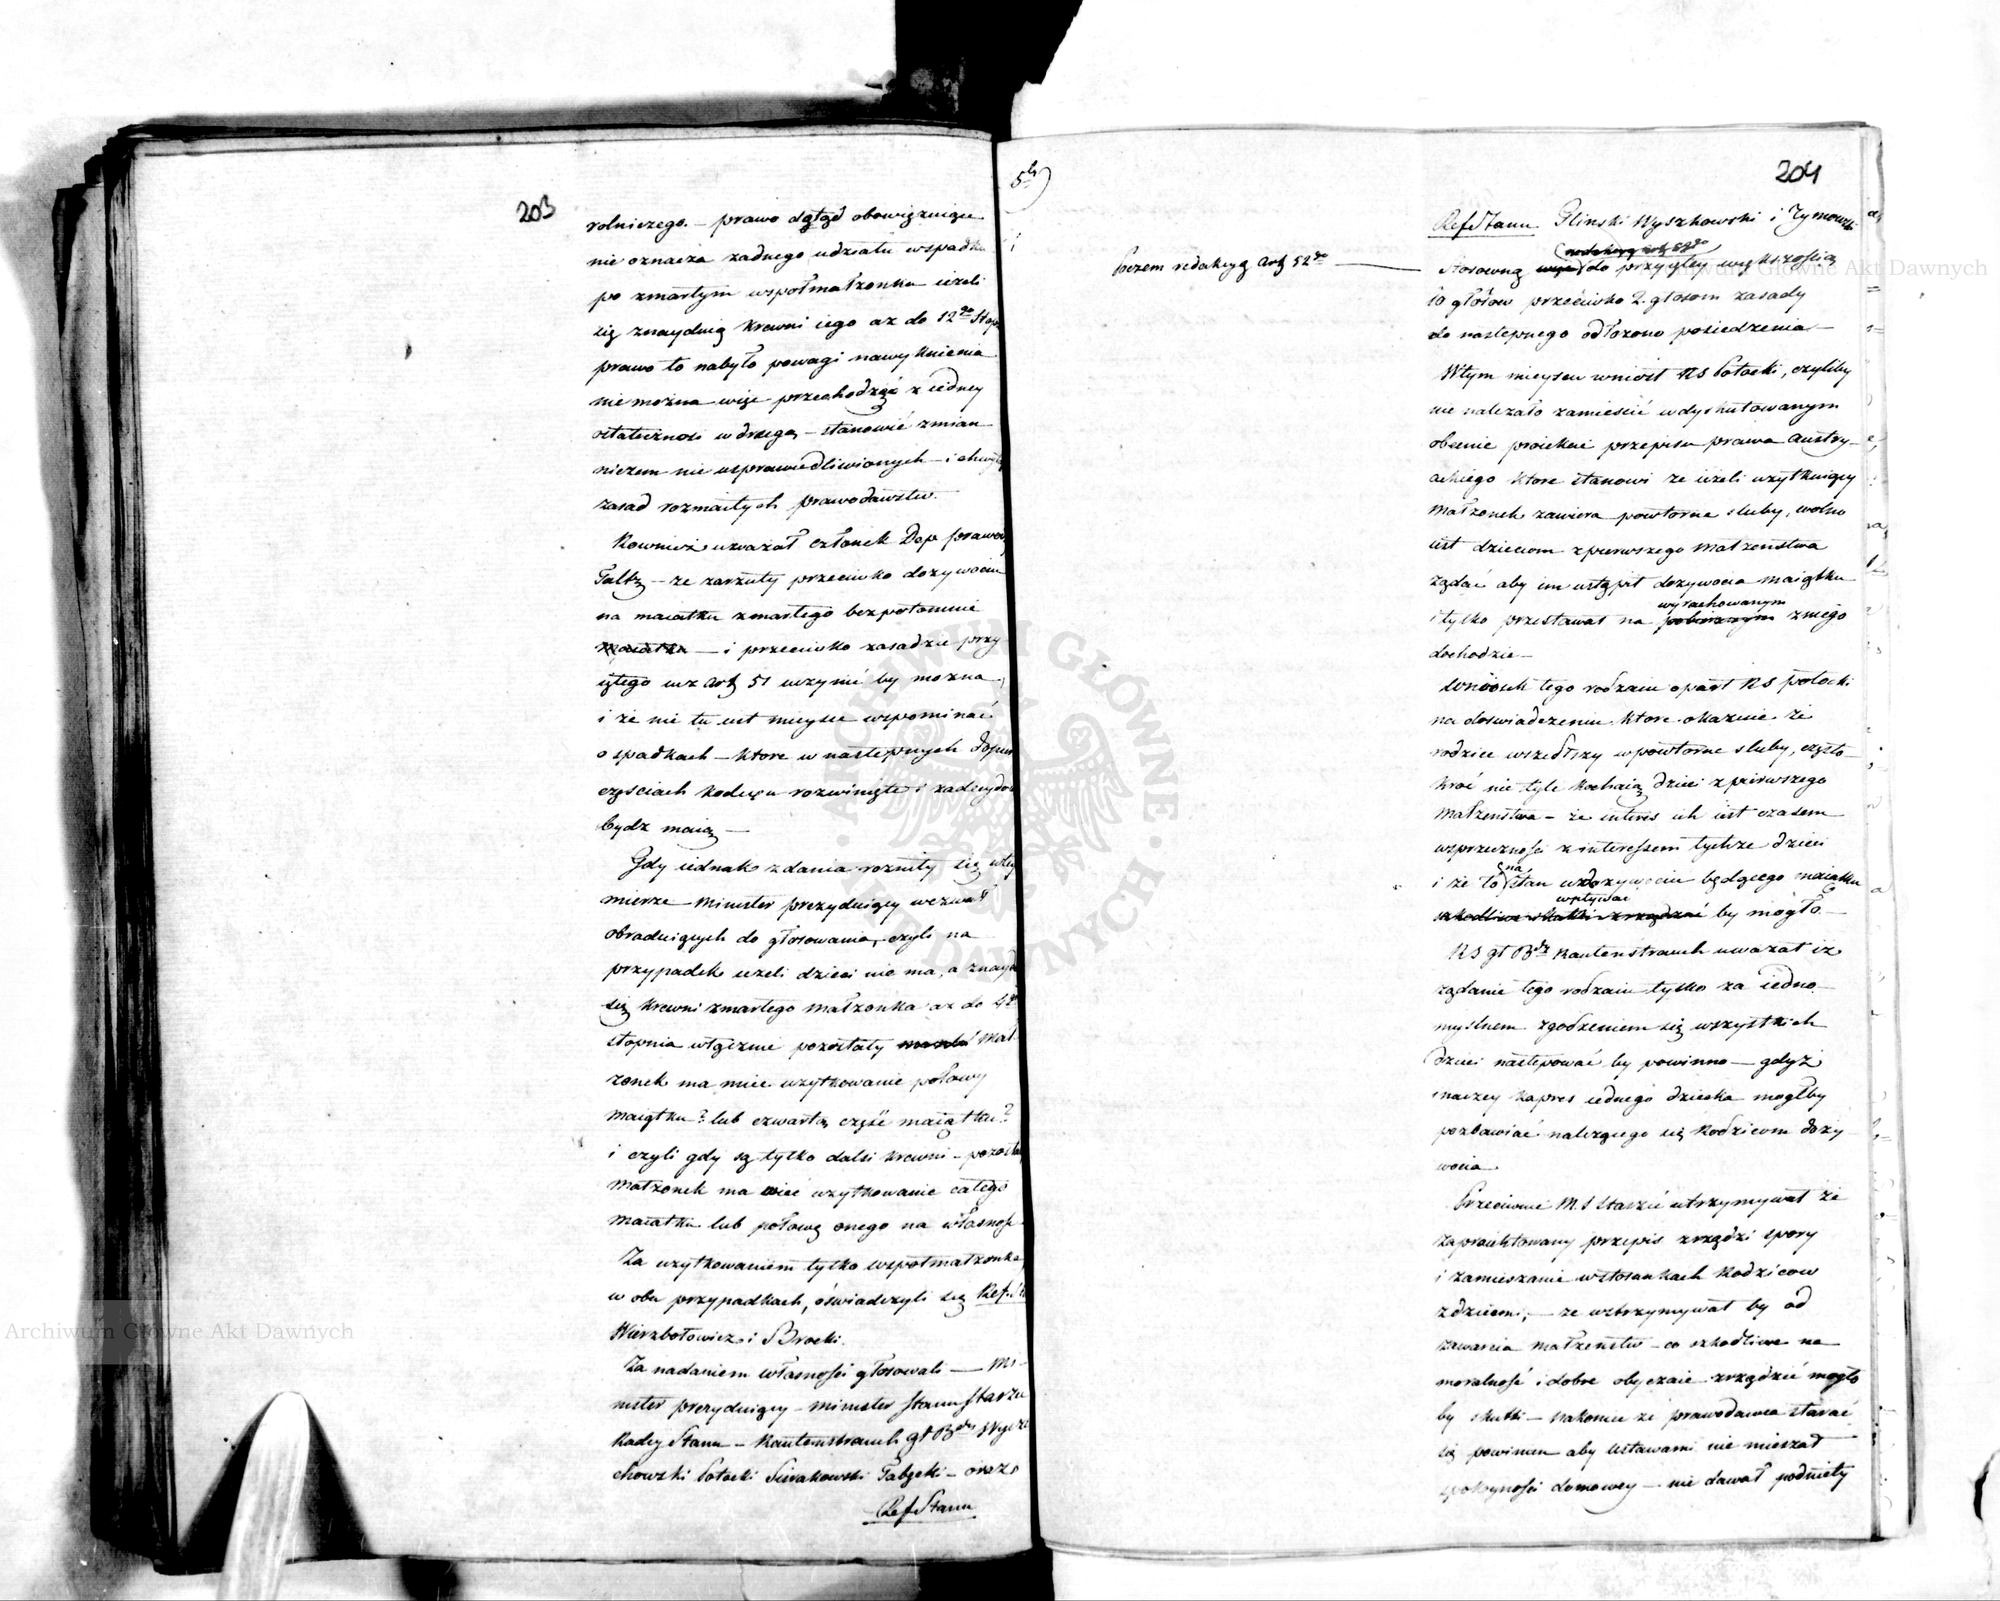 203
rolniczego. — prawo dotąd obowięzuiące
nie oznacza żadnego udziału w spadku
po zmarłym wspołmałżonku ieżeli
się znayduią krewni iego aż do 12go Stop
prawo to nabyło powagi nawyknienia
nie można więc przechodząc z iedney
ostateczności w drugą — stanowić zmian
niczem nie usprawiedliwionych — i
zasad rozmaitych prawodawstw.
Rownież uważał członek Dep. prawod
— że zarzuty przeciwko dożywociu
na maiątku zmarłego bezpotomnie
maiątku — i przeciwko zasadzie przy
iętego w art 51 uczynić by można,
i że nie tu iest mieysce wspominać
o spadkach — ktore w następnych
częściach kodexu rozwinięte i
bydz maią —
Gdy iednak zdania rożniły się w tey
mierze Minister prezyduiący wezwał
obraduiących do głosowania, czyli na
przypadek ieżeli dzieci nie ma, a znayd
się krewni zmarłego małżonka aż do 4go
stopnia włącznie pozostały Mał-
żonek ma mieć użytkowanie połowy
maiątku? lub czwartą część maiątku?
i czyli gdy są tylko dalsi krewni — pozostał
Małżonek ma mieć użytkowanie całego
maiątku lub połowę onego na własność
Za użytkowaniem tylko wspołmałżonka,
w obu przypadkach, oświadczyli się Ref. St
Wierzbołowicz i Brocki.
Za nadaniem własności głosowali — Mi-
nister prezyduiący — minister stanu Staszic
Radcy Stanu — Kautenstrauch gł Bdy Wycze
chowski Potocki Sierakowski — oraz
Ref Stanu
204
Ref Stanu Glinski Wyszkowski i Tymowski
Poczem redakcyą art 52go —
redakcyą art 52go
Stosowną więc do przyiętey większością
10 głosow przeciwko 2. głosom zasady
do następnego odłożono posiedzenia —
W tym mieyscu wniosł RS Potocki, czyliby
nie należało zamieścić w dyskutowanym
obecnie proiekcie przepisu prawa Austry-
ackiego ktore stanowi że ieżeli użytkuiący
Małżonek zawiera powtorne sluby, wolno
iest dzieciom z pierwszego Małżeństwa
żądać aby im ustąpił dożywocia maiątku
wyrachowanym
i tylko przestawał na pobieranym z niego
dochodzie —
Wniosek tego rodzaiu oparł RS Potocki
na doswiadczeniu ktore okazuie że
rodzice wszedłszy w powtorne sluby, często-
kroć nie tyle kochaią dzieci z pierwszego
Małżeństwa — że interes ich iest czasem
w sprzeczności z interessem tychże dzieci
i że to na stan w dożywociu będącego maiątku
wpływać
szkodliwe skutki zrządzać by mogło —
RS gł Bdy Kautenstrauch uważał iż
żądanie tego rodzaiu tylko za iedno-
myslnem zgodzeniem się wszystkich
dzieci następować by powinno — gdyż
inaczey kaprys iednego dziecka mogłby
pozbawiać należącego się Rodzicom doży-
wocia.
Przeciwnie M.S Staszic utrzymywał że
zaproiektowany przepis zrządzi spory
i zamieszanie w stosunkach Rodzicow
z dziećmi; — że wstrzymywał by od
zawarcia małżeństw — co szkodliwe na
moralność i dobre obyczaie zrządzić mogło
by skutki — nakoniec że prawodawca starać
się powinien aby Ustawami nie mieszał
spokoyności domowey — nie dawał podniety